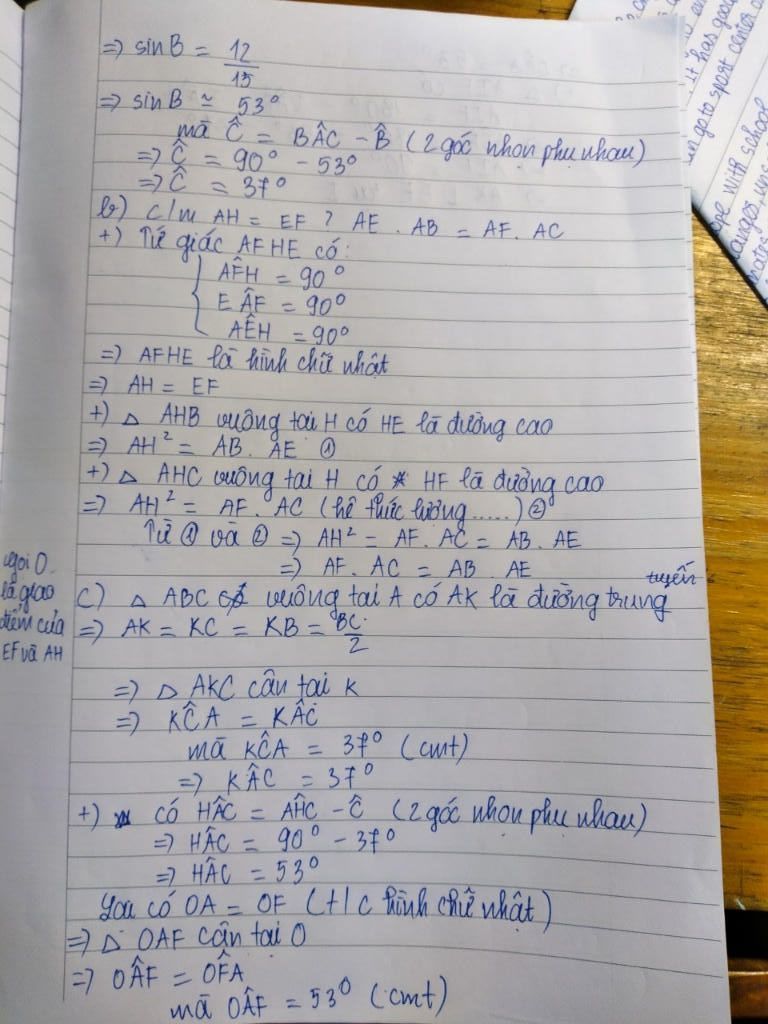 => sinB = 12/15
=> sinB ≃ 53°
mà Ĉ = BÂC - B̂ (2 góc nhọn phụ nhau)
=> Ĉ = 90° - 53°
=> Ĉ = 37°
b) c/m AH = EF ? AE . AB = AF. AC
+) Tứ giác AFHE có:
AF̂H = 90°
EÂF = 90°
AÊH = 90°
=> AFHE là hình chữ nhật
=> AH = EF
+) △ AHB vuông tại H có HE là đường cao
=> AH² = AB. AE ①
+) △ AHC vuông tại H có HF là đường cao
=> AH² = AF. AC (hệ thức lượng.....) ②
Từ ① và ② => AH² = AF. AC = AB. AE
=> AF. AC = AB. AE
gọi O
là giao
điểm của
EF và AH
c) △ ABC vuông tại A có AK là đường trung tuyến
=> AK = KC = KB = BC/2
=> △ AKC cân tại K
=> KĈA = KÂC
mà KĈA = 37° (cmt)
=> KÂC = 37°
+) có HÂC = AĤC - Ĉ (2 góc nhọn phụ nhau)
=> HÂC = 90° - 37°
=> HÂC = 53°
có OA = OF (t/c hình chữ nhật)
=> △ OAF cân tại O
=> OÂF = OF̂A
mà OÂF = 53° (cmt)